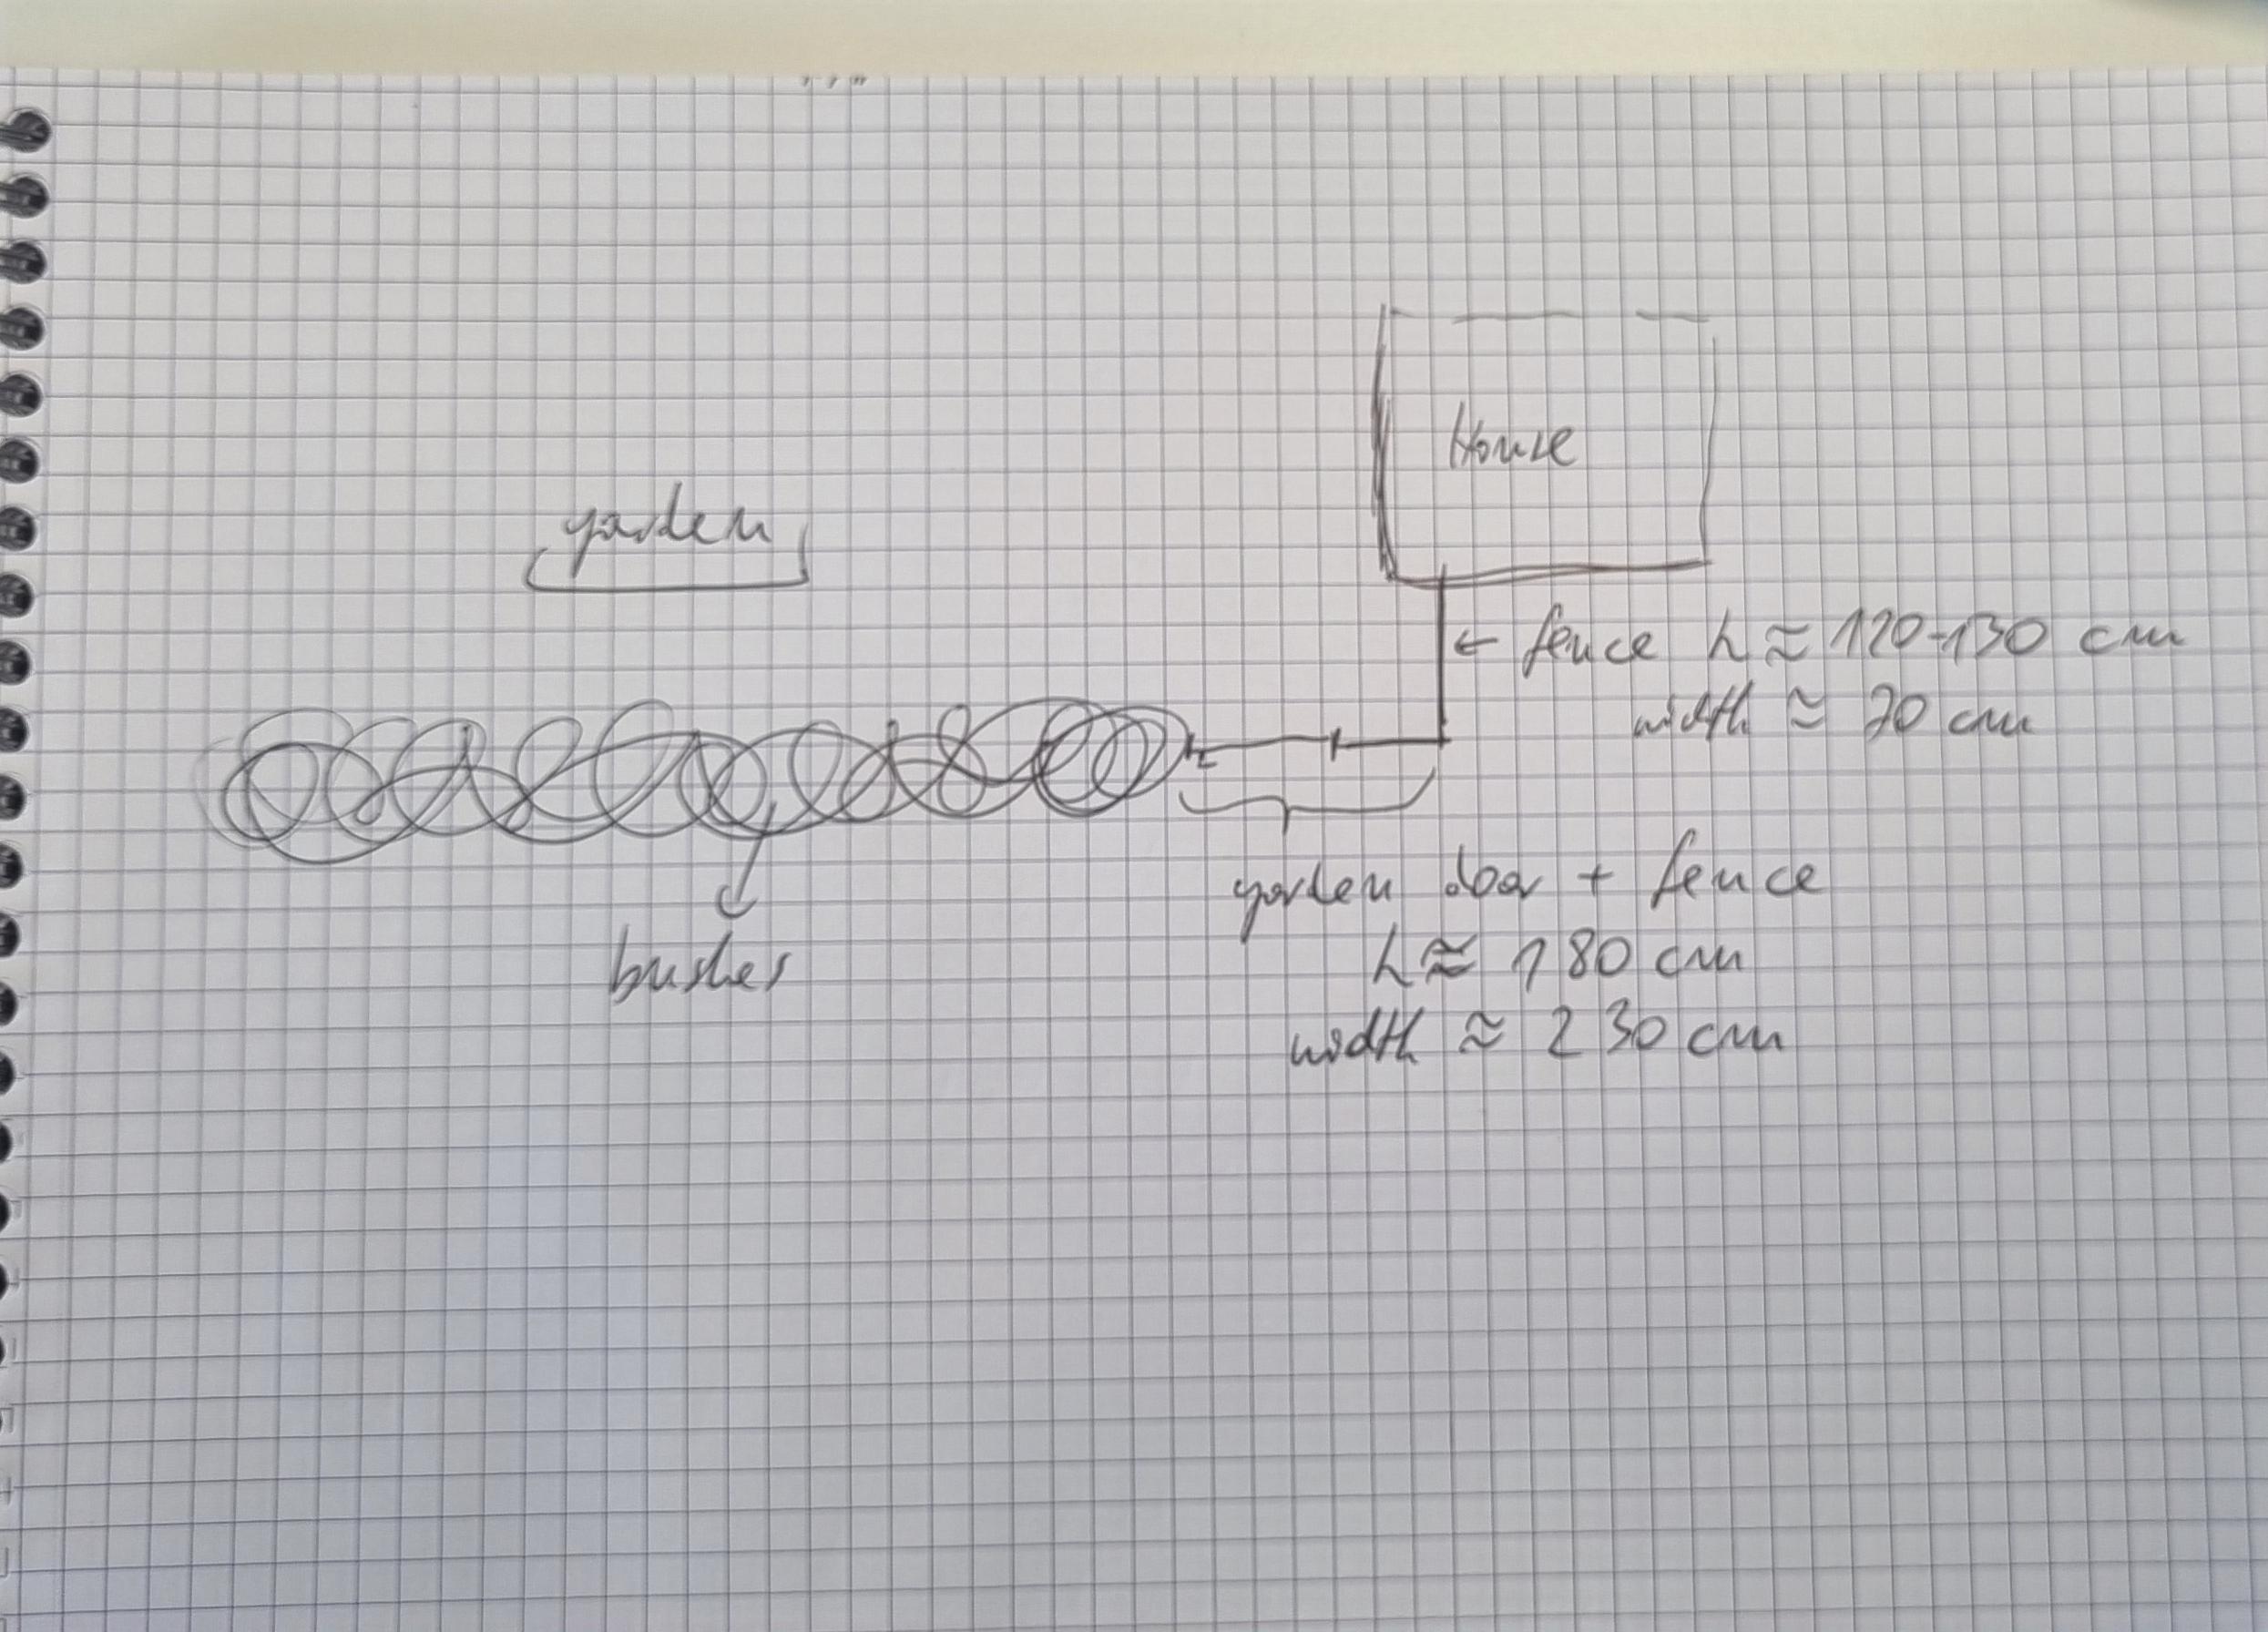 House
garden
← fence h ≈ 120-130 cm
width ≈ 70 cm
garden door + fence
h ≈ 180 cm
width ≈ 230 cm
bushes